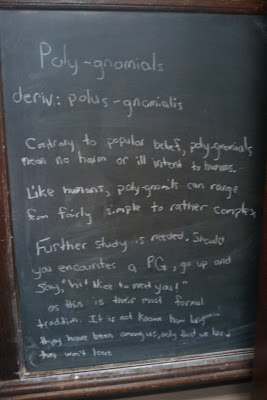 Poly-gnomials
deriv: polus-gnomialis
Contrary to popular belief, poly-gnomials
mean no harm or ill intent to humans.
Like humans, poly-gnomials can range
from fairly simple to rather complex
Further study is needed. Should
you encounter a PG, go up and
say, "hi! Nice to meet you!"
as this is their most formal
tradition. It is not known how long
they have been among us, only that we hope
they won't leave